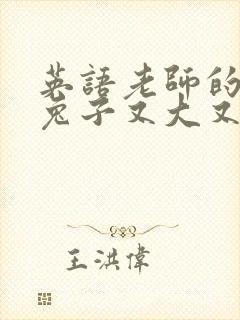 英語老師的
兔子又大又
王洪偉